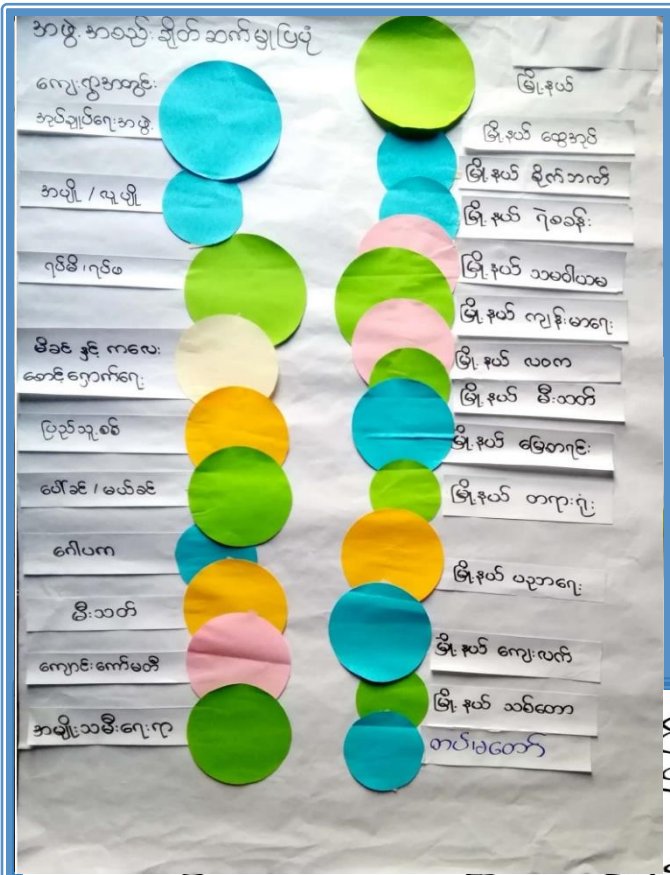 အဖွဲ့အစည်းချိတ်ဆက်မှုပြပုံ
ကျေးရွာအတွင်း
အုပ်ချုပ်ရေးအဖွဲ့
အပျို / လူပျို
ရပ်မိ၊ ရပ်ဖ
မိခင် နှင့် ကလေး
စောင့်ရှောက်ရေး
ပြည်သူ့စစ်
ဖေါ်ခင် / မယ်ခင်
ဂေါပက
မီးသတ်
ကျောင်းကော်မတီ
အမျိုးသမီးရေးရာ
မြို့နယ်
မြို့နယ် ထွေအုပ်
မြို့နယ် စိုက်ဘဏ်
မြို့နယ် ရဲစခန်း
မြို့နယ် သမဝါယမ
မြို့နယ် ကျန်းမာရေး
မြို့နယ် လဝက
မြို့နယ် မီးသတ်
မြို့နယ် မြေစာရင်း
မြို့နယ် တရားရုံး
မြို့နယ် ပညာရေး
မြို့နယ် ကျေးလက်
မြို့နယ် သစ်တော
တပ်မတော်